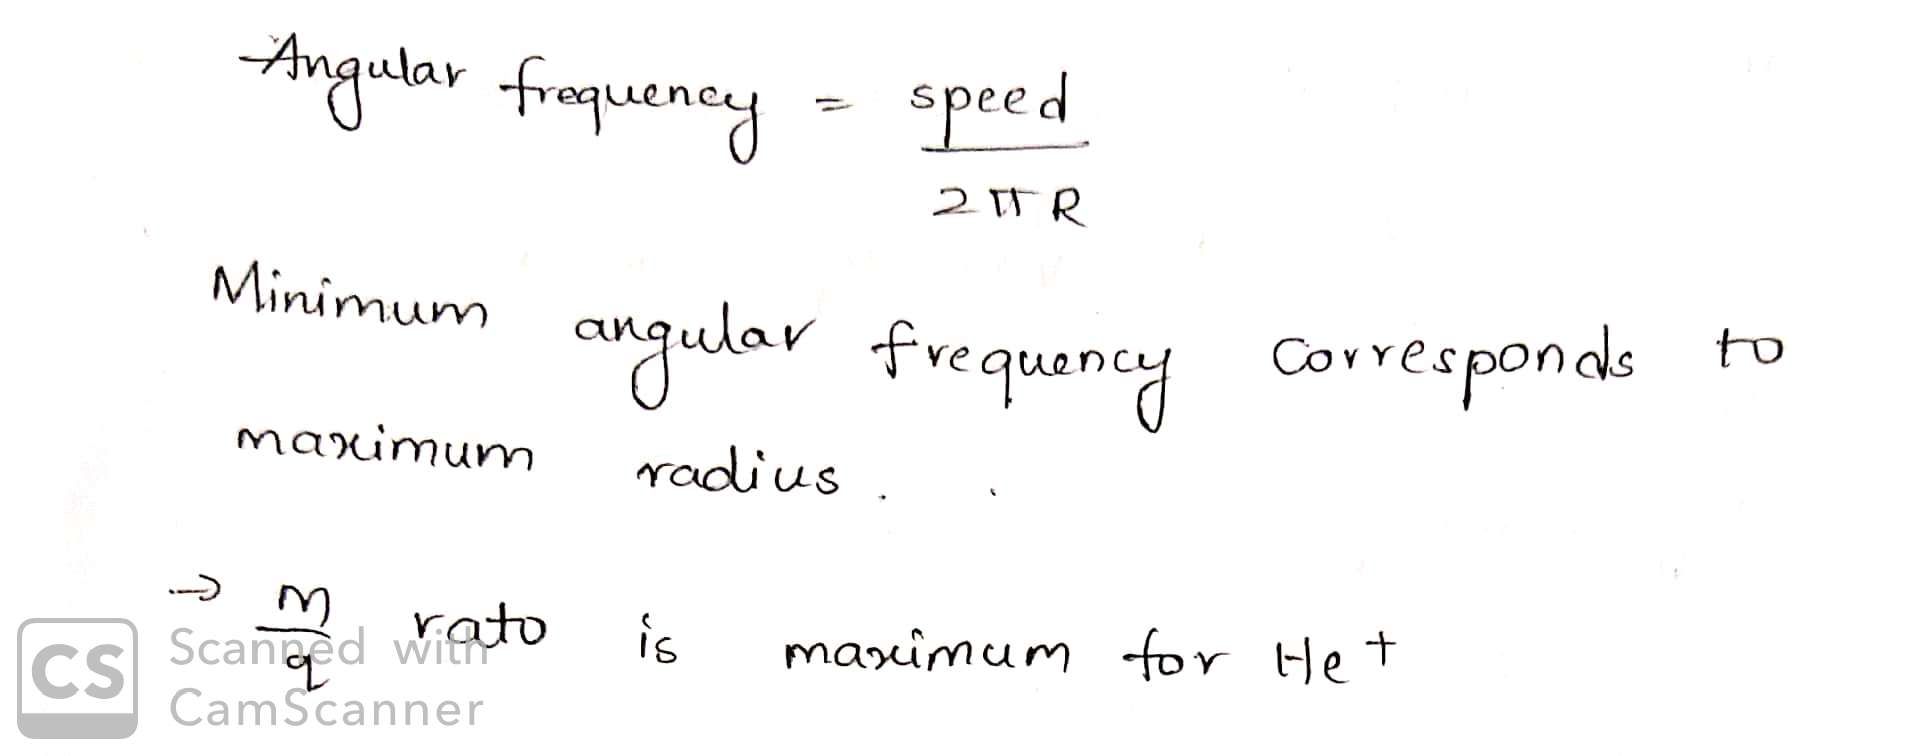 Angular frequency = speed
2πR
Minimum angular frequency corresponds to
maximum radius.
→ m
q rato is maximum for He+
CS Scanned with
CamScanner